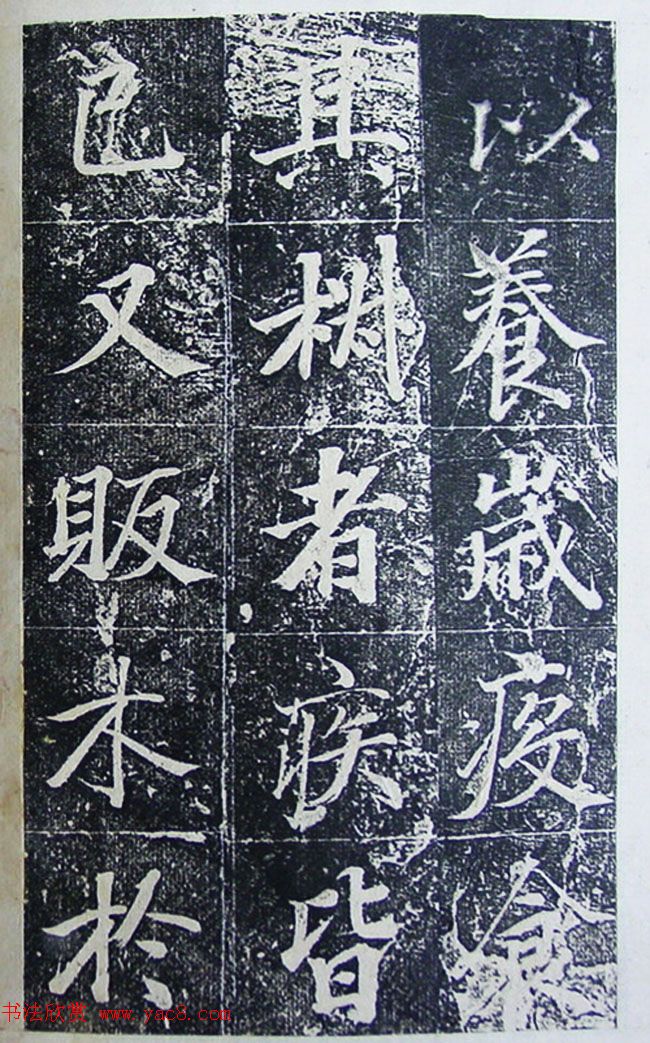 以養歲疫
其者疾皆
已又販木於
书法欣赏 www.yac8.com